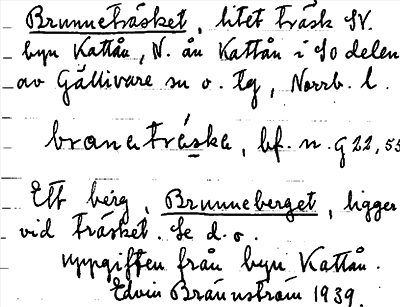 Brunneträsket, litet träsk SV.
byn Kattån, N. ån Kattån i SO delen
av Gällivare sn o. tg, Norrb. l.
branaträska, bf. n. g 22, 55
Ett berg, Brunneberget, ligger
vid träsket. Se d. o.
uppgiften från byn Kattån.
Edvin Brännström 1939.